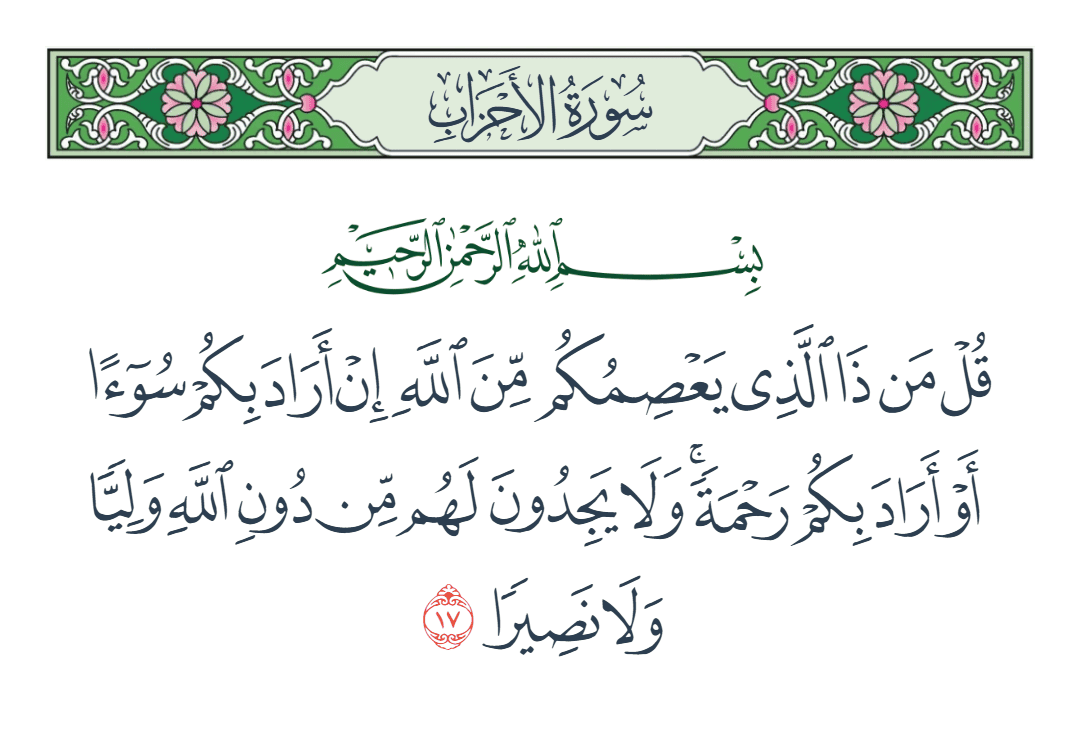 سُورَةُ الأَحْزَابِ
بِسْمِ ٱللَّهِ ٱلرَّحْمَٰنِ ٱلرَّحِيمِ
قُلْ مَن ذَا ٱلَّذِى يَعْصِمُكُم مِّنَ ٱللَّهِ إِنْ أَرَادَ بِكُمْ سُوٓءًا
أَوْ أَرَادَ بِكُمْ رَحْمَةً ۚ وَلَا يَجِدُونَ لَهُم مِّن دُونِ ٱللَّهِ وَلِيًّا
وَلَا نَصِيرًا ١٧